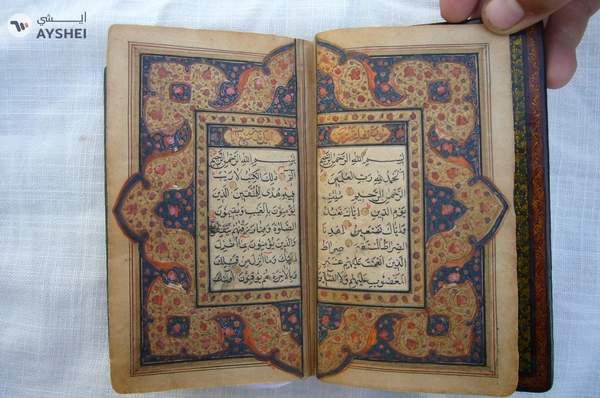 ايشي
AYSHEI
بسم الله الرحمن الرحيم
الحمد لله رب العلمين
الرحمن الرحيم ملك
يوم الدين اياك نعبد
واياك نستعين اهدنا
الصراط المستقيم صراط
الذين انعمت عليهم غير
المغضوب عليهم ولا الضالين
بسم الله الرحمن الرحيم
الم ذلك الكتب لا ريب
فيه هدى للمتقين الذين
يؤمنون بالغيب ويقيمون
الصلوة ومما رزقنهم ينفقون
والذين يؤمنون بما انزل
اليك وما انزل من قبلك
وبالاخرة هم يوقنون اولئك